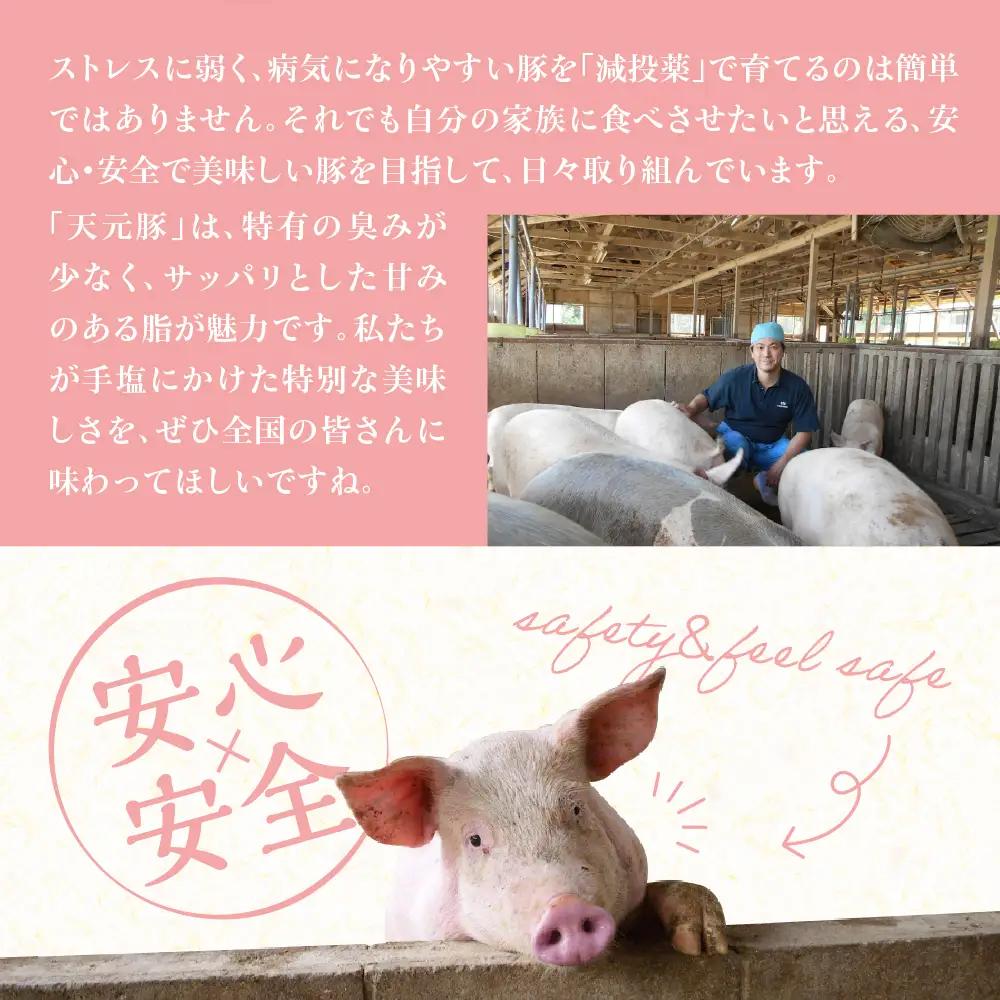 ストレスに弱く、病気になりやすい豚を「減投薬」で育てるのは簡単
ではありません。それでも自分の家族に食べさせたいと思える、安
心・安全で美味しい豚を目指して、日々取り組んでいます。
「天元豚」は、特有の臭みが
少なく、サッパリとした甘み
のある脂が魅力です。私たち
が手塩にかけた特別な美味
しさを、ぜひ全国の皆さんに
味わってほしいですね。
安心
×
安全
safety&feel safe